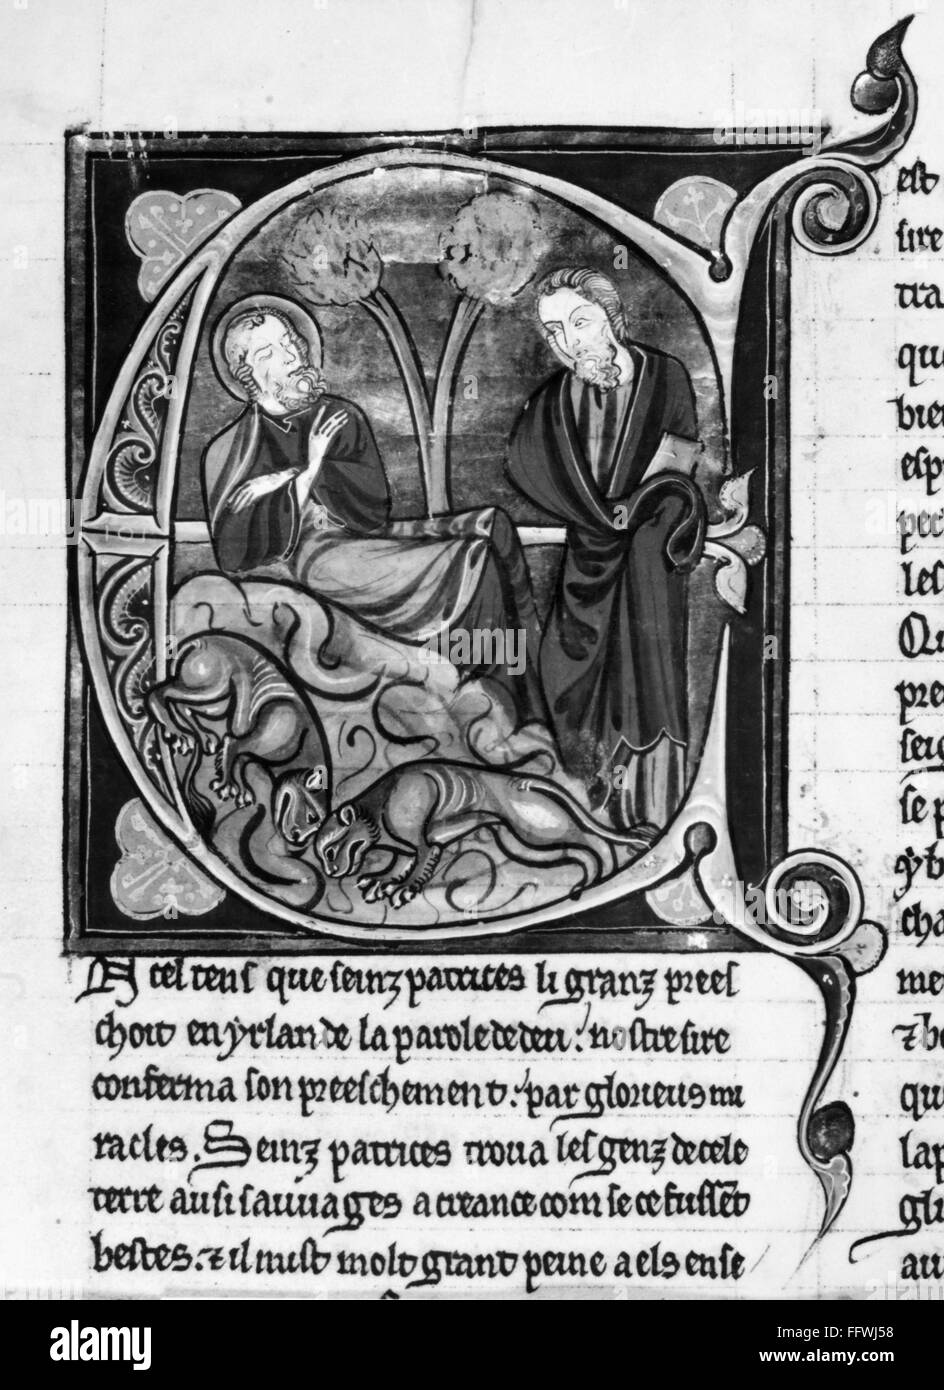 A cel tens que seinz patrices li granz prees
choit en yrlande la parole de deu: nostre sire
conferma son preeschement: par glorieus mi
racles. Seinz patrices troua les genz de cele
terre ausi sauuages a creance com se ce fussent
bestes. & il mist molt grant peine a els ense
est
sire
tra
que
bie
esp
les
pre
seig
se p
cha
me
& be
que
la p
gli
au
alamy stock photo
FFWJ58
www.alamy.com